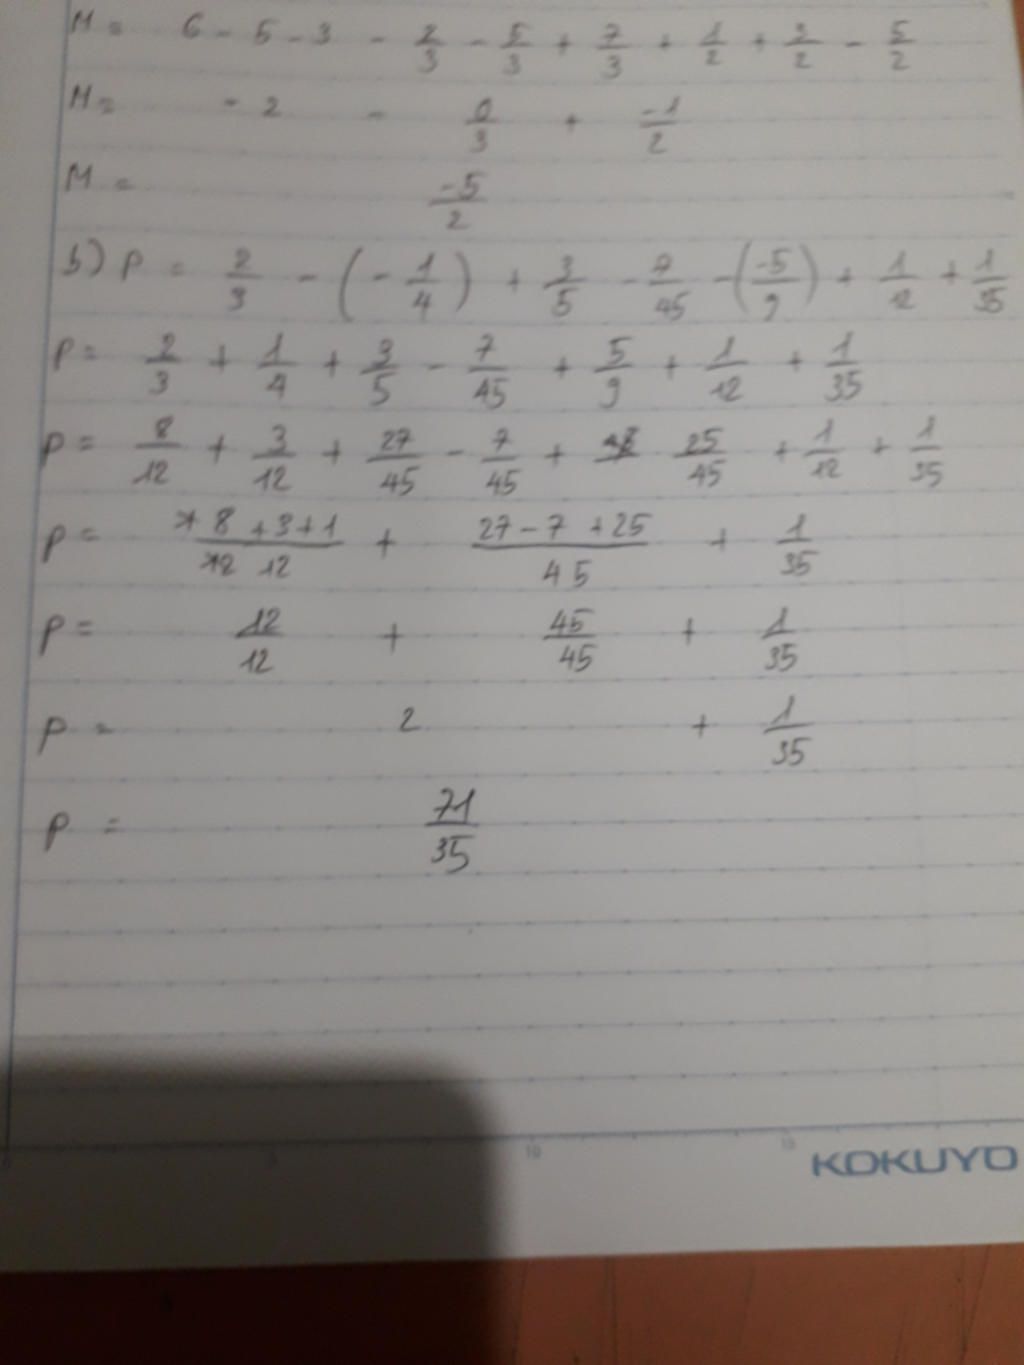 M = 6 - 5 - 3 - 2/3 - 5/3 + 7/3 + 1/2 + 3/2 - 5/2
M = - 2 - 0/3 + -1/2
M = -5/2
b) P = 2/3 - (- 1/4) + 3/5 - 7/45 - (-5/9) + 1/12 + 1/35
P = 2/3 + 1/4 + 3/5 - 7/45 + 5/9 + 1/12 + 1/35
P = 8/12 + 3/12 + 27/45 - 7/45 + 25/45 + 1/12 + 1/35
P = 8 + 3 + 1/12 + 27 - 7 + 25/45 + 1/35
P = 12/12 + 45/45 + 1/35
P = 2 + 1/35
P = 71/35
10 15
KOKUYO